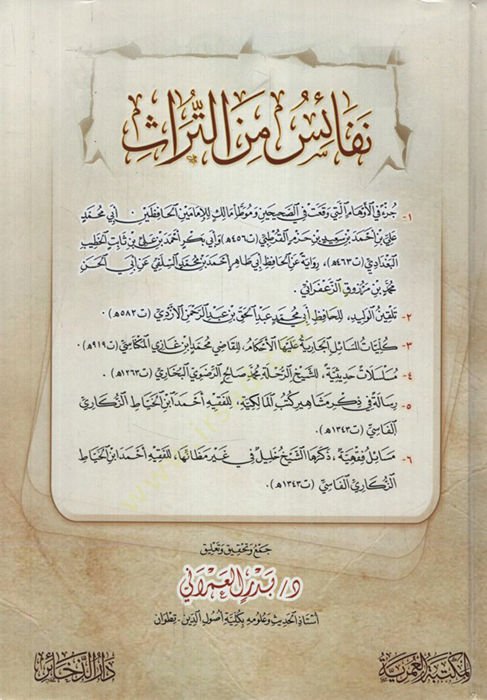 نَفَائِسُ مِنَ التُّرَاثِ
١- جُزْءٌ فِي الأَوْهَامِ الَّتِي وَقَعَتْ فِي الصَّحِيحَيْنِ وَمُوَطَّأ مَالِكٍ لِلإِمَامَيْنِ الحَافِظَيْنِ: أَبِي مُحَمَّدٍ
عَلِيِّ بْنِ أَحْمَدَ بْنِ سَعِيدِ بْنِ حَزْمٍ القُرْطُبِيِّ (ت٤٥٦هـ) وَأَبِي بَكْرٍ أَحْمَدَ بْنِ عَلِيِّ بْنِ ثَابِتٍ الخَطِيبِ
البَغْدَادِيِّ (ت٤٦٣هـ)، رِوَايَةُ عَنِ الحَافِظِ أَبِي طَاهِرٍ أَحْمَدَ بْنِ مُحَمَّدٍ السِّلَفِيِّ عَنْ أَبِي الحَسَنِ
مُحَمَّدِ بْنِ مَرْزُوقٍ الزَّعْفَرَانِيِّ.
٢- تَلْقِينُ الوَلِيدِ، لِلحَافِظِ أَبِي مُحَمَّدٍ عَبْدِ الحَقِّ بْنِ عَبْدِ الرَّحْمَنِ الأَزْدِيِّ (ت٥٨٢هـ).
٣- كُلِّيَاتُ المَسَائِلِ الجَارِيَةِ عَلَيْهَا الأَحْكَامُ، لِلقَاضِي مُحَمَّدِ ابْنِ غَازِي المِكْنَاسِيِّ (ت٩١٩هـ).
٤- مُسَلْسَلَاتٌ حَدِيثِيَّةٌ، لِلشَّيْخِ الرُّحَلَةِ مُحَمَّد صَالِح الرَّضَوِيِّ البُخَارِيِّ (ت١٢٦٣هـ).
٥- رِسَالَةٌ فِي ذِكْرِ مَشَاهِيرِ كُتُبِ المَالِكِيَّةِ، لِلفَقِيهِ أَحْمَدَ ابْنِ الخَيَّاطِ الزُّكَّارِيِّ
الفَاسِيِّ (ت١٣٤٣هـ).
٦- مَسَائِلُ فِقْهِيَّةٌ، ذَكَرَهَا الشَّيْخُ خَلِيلٌ فِي غَيْرِ مَظَانِّهَا، لِلفَقِيهِ أَحْمَدَ ابْنِ الخَيَّاطِ
الزُّكَّارِيِّ الفَاسِيِّ (ت١٣٤٣هـ).
جَمْعُ وَتَحْقِيقُ وَتَعْلِيقُ
د/ بَدْر العَمْرَانِي
أُسْتَاذُ الحَدِيثِ وَعُلُومِهِ بِكُلِّيَةِ أُصُولِ الدِّينِ - تِطْوَان
المكتبة العمرية
دار الذخائر